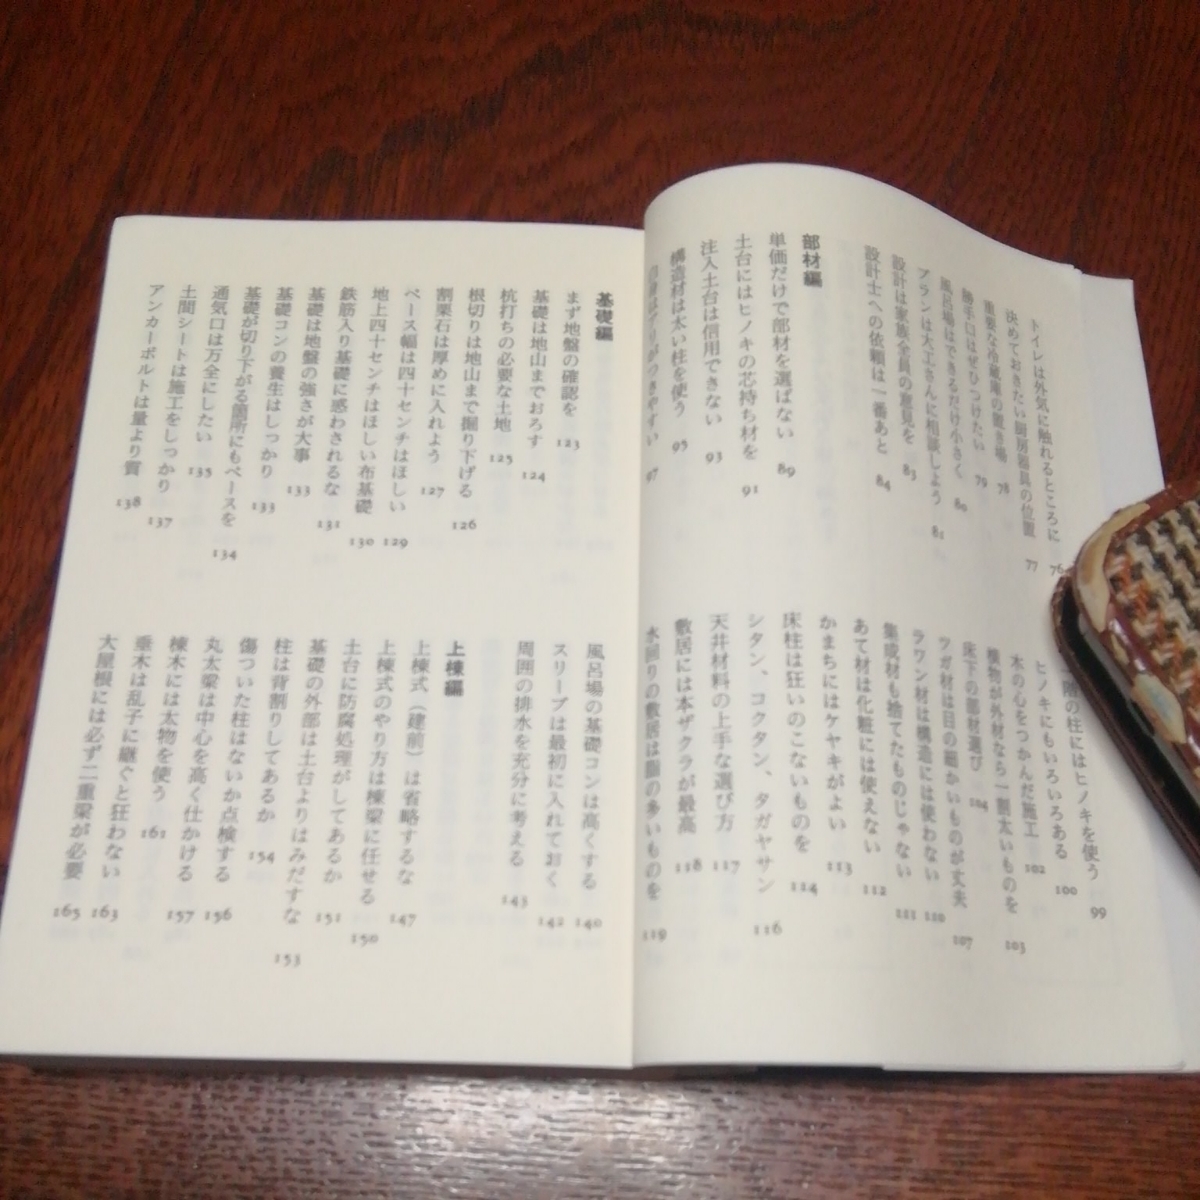 トイレは外気に触れるところに 76
決めておきたい厨房器具の位置 77
重要な冷蔵庫の置き場 78
勝手口はぜひつけたい 79
風呂場はできるだけ小さく 80
プランは大工さんに相談しよう 81
設計は家族全員の意見を 83
設計士への依頼は一番あと 84
部材編
単価だけで部材を選ばない 89
土台にはヒノキの芯持ち材を 91
注入土台は信用できない 93
構造材は太い柱を使う 95
がつきやすい 97
階の柱にはヒノキを使う 99
ヒノキにもいろいろある 100
木の心をつかんだ施工 102
横物が外材なら一割太いものを 103
床下の部材選び 104
ツガ材は目の細かいものが丈夫 107
ラワン材は構造には使わない 110
集成材も捨てたものじゃない 111
あて材は化粧には使えない 112
かまちにはケヤキがよい 113
床柱は狂いのこないものを 114
シタン、コクタン、タガヤサン 116
天井材料の上手な選び方 117
敷居には本ザクラが最高 118
水回りの敷居は脂の多いものを 119
基礎編
まず地盤の確認を 123
基礎は地山までおろす 124
杭打ちの必要な土地 125
根切りは地山まで掘り下げる 126
割栗石は厚めに入れよう 127
ベース幅は四十センチはほしい 129
地上四十センチはほしい布基礎 130
鉄筋入り基礎に惑わされるな 131
基礎は地盤の強さが大事 133
基礎コンの養生はしっかり 133
基礎が切り下がる箇所にもベースを 134
通気口は万全にしたい 135
土間シートは施工をしっかり 137
アンカーボルトは量より質 138
風呂場の基礎コンは高くする 140
スリーブは最初に入れておく 142
周囲の排水を充分に考える 143
上棟編
上棟式（建前）は省略するな 147
上棟式のやり方は棟梁に任せる 150
土台に防腐処理がしてあるか 151
基礎の外部は土台よりはみだすな 153
柱は背割りしてあるか 154
傷ついた柱はないか点検する 156
丸太梁は中心を高く仕かける 157
棟木には太物を使う 161
垂木は乱子に継ぐと狂わない 163
大屋根には必ず二重梁が必要 165